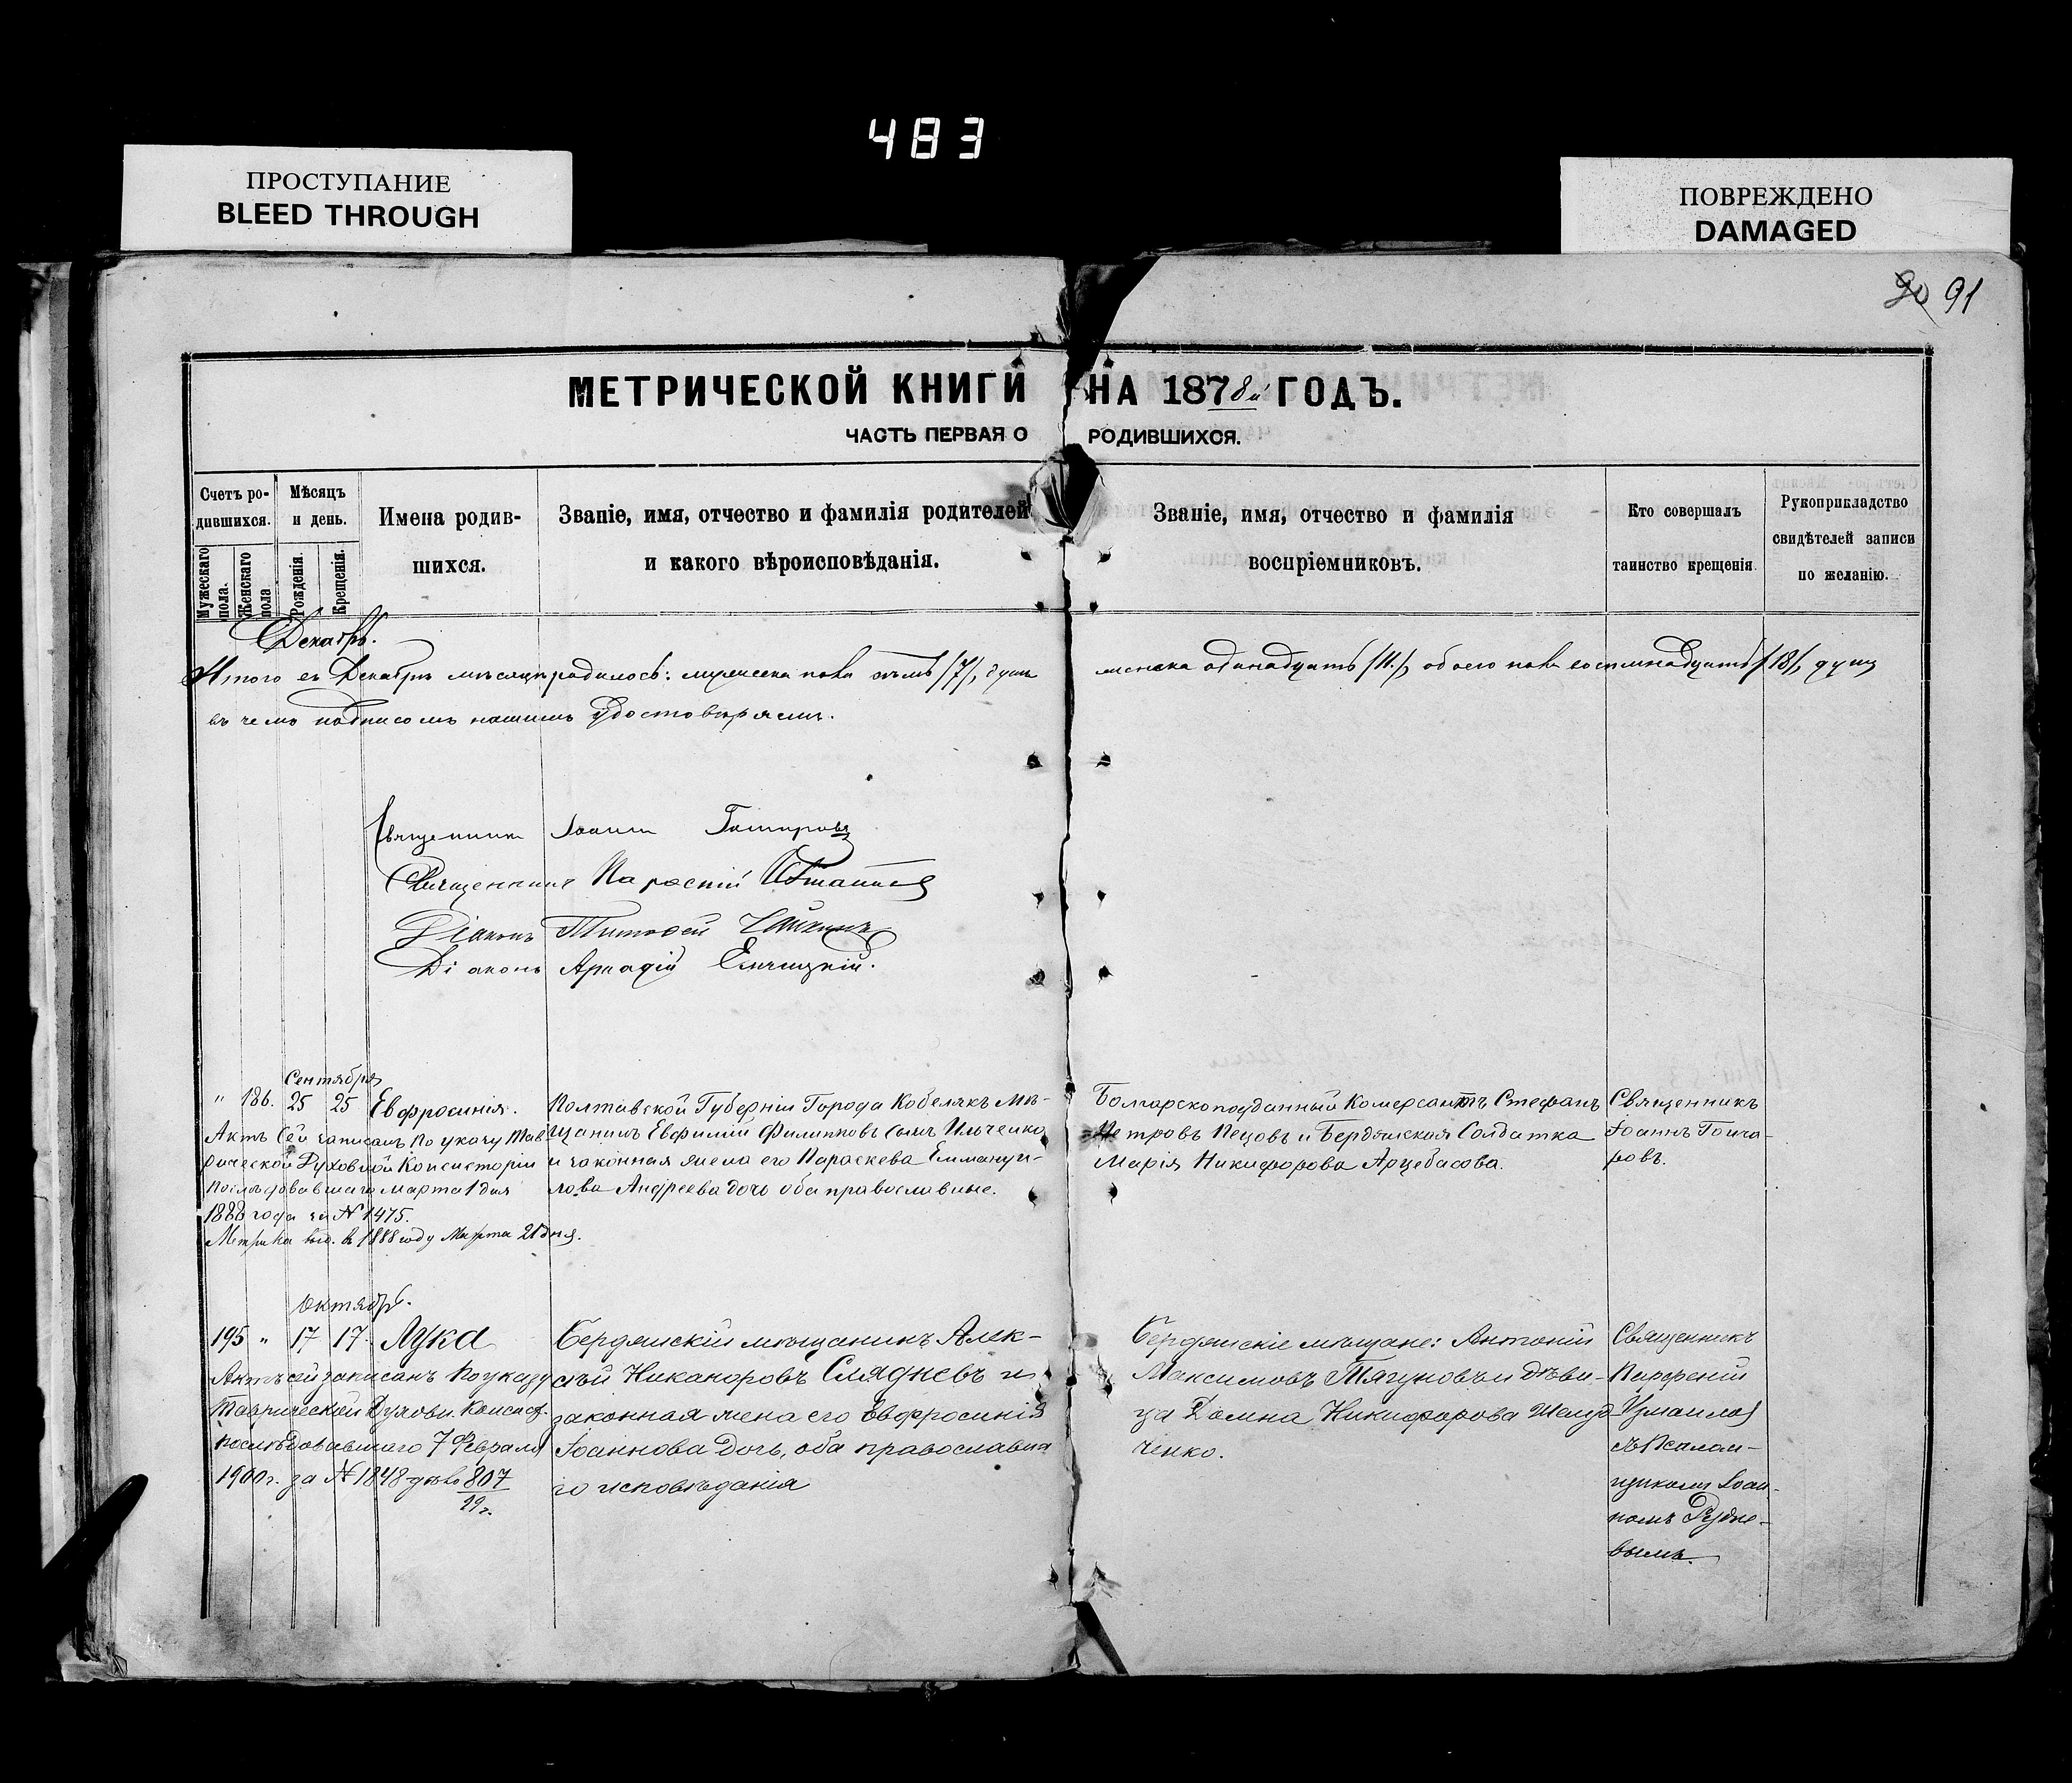 483
ПРОСТУПАНИЕ
BLEED THROUGH
ПОВРЕЖДЕНО
DAMAGED
90 91
МЕТРИЧЕСКОЙ КНИГИ НА 1878й ГОДЪ.
ЧАСТЬ ПЕРВАЯ О РОДИВШИХСЯ.
Счетъ ро-
дившихся.
Мужескаго пола.
Женскаго пола
Мѣсяцъ
и день.
Рожденія.
Крещенія.
Имена родив-
шихся.
Званіе, имя, отчество и фамилія родителей
и какого вѣроисповѣданія.
Званіе, имя, отчество и фамилія
воспріемниковъ.
Кто совершалъ
таинство крещенія
Рукоприкладство
свидѣтелей записи
по желанію.
Декабрь.
Итого въ Декабрѣ мѣсяцѣ родилось: мужеска пола /7/, душъ женска одинадцать /11/, обоего пола восемнадцать /18/, душъ
въ чемъ подписомъ нашимъ удостовѣряемъ.
Священникъ Іоаннъ
Священникъ
Діаконъ Тимофей
Діаконъ Аркадій
Сентября
" 186. 25 25 Евфросинія.
Актъ сей записанъ по указу Тав-
рической Духовной Консисторіи
послѣдовавшаго Марта 1 дня
1888 года за № 1475.
Метрика выд. въ 1888 году Марта 21 дня.
Полтавской Губерніи Города Кобелякъ Мѣ-
щанинъ Евфимій Филипповъ сынъ Ильченко
и законная жена его Параскева Еммануи-
лова Андреева дочь оба православные.
Болгарскоподданный Комерсантъ Стефанъ
Петровъ Пецовъ и Бердянская Солдатка
Марія Никифорова Арцебасова.
Священникъ
Іоаннъ Гонча-
ровъ.
Октябрь.
195 " 17 17. Лука
Актъ сей записанъ по указу
Таврической Духовн. Консист.
послѣдовавшаго 7 Февраля
1900 г. за № 1848 дѣло 807
99 г.
Бердянскій мѣщанинъ Алек-
сѣй Никаноровъ Слядневъ и
законная жена его Евфросинія
Іоаннова дочь, оба православна
го исповѣданія
Бердянскіе мѣщане: Антоній
Максимовъ Тягуновъ и дѣви-
ца Домна Никифорова
ченко.
Священникъ
Парфеній
Измаилов
съ Псалом-
щикомъ Іоан-
номъ Рудне-
вымъ.